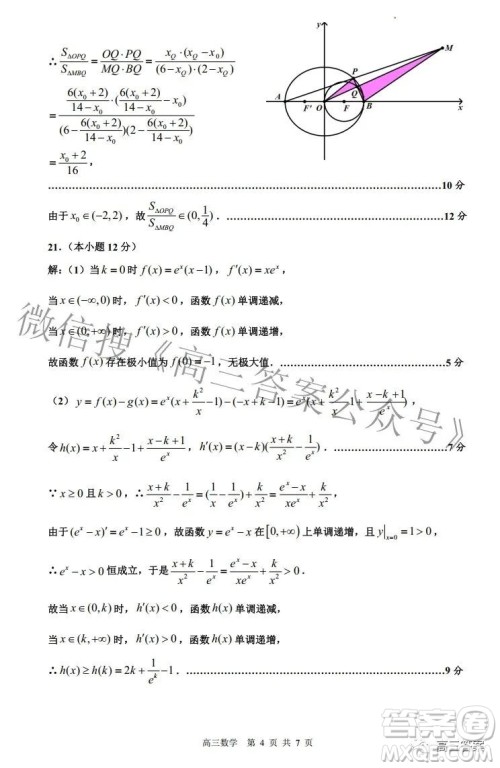 ∴ S△OPQ/S△MBQ = (OQ·PQ)/(MQ·BQ) = (x_Q·(x_Q−x₀))/((6−x_Q)·(2−x_Q))
= (6(x₀+2)/(14−x₀)·(6(x₀+2)/(14−x₀)−x₀))/((6−6(x₀+2)/(14−x₀))(2−6(x₀+2)/(14−x₀)))
= (x₀+2)/16，
y
M
P
Q
A
F'
O
F
B
x
10 分
由于 x₀∈(−2,2)，故 S△OPQ/S△MBQ ∈(0,1/4)．12 分
21.（本小题 12 分）
解：（1）当 k=0 时 f(x)=eˣ(x−1)，f′(x)=xeˣ，
当 x∈(−∞,0) 时，f′(x)<0，函数 f(x) 单调递减，
当 x∈(0,+∞) 时，f′(x)>0，函数 f(x) 单调递增，
故函数 f(x) 存在极小值为 f(0)=−1，无极大值．5 分
（2）y=f(x)−g(x)=eˣ(x+k²/x−1)−(−x+k−1)=eˣ(x+k²/x−1+(x−k+1)/eˣ)，
令 h(x)=x+k²/x−1+(x−k+1)/eˣ，h′(x)=(x−k)((x+k)/x²−1/eˣ)．7 分
∵ x≥0 且 k>0，∴ (x+k)/x²−1/eˣ=(1/x−1/eˣ)+k/x²=(eˣ−x)/(xeˣ)+k/x²，
由于 (eˣ−x)′=eˣ−1≥0，故函数 y=eˣ−x 在 [0,+∞) 上单调递增，且 y|ₓ₌₀=1>0，
∴ eˣ−x>0 恒成立，于是 (x+k)/x²−1/eˣ=(eˣ−x)/(xeˣ)+k/x²>0．
故当 x∈(0,k) 时，h′(x)<0，函数 h(x) 单调递减，
当 x∈(k,+∞) 时，h′(x)>0，函数 h(x) 单调递增，
∴ h(x)≥h(k)=2k+1/eᵏ−1．9 分
高三数学 第 4 页 共 7 页
微信搜《高三答案公众号》
高三答案
答案圈
MXQE.COM